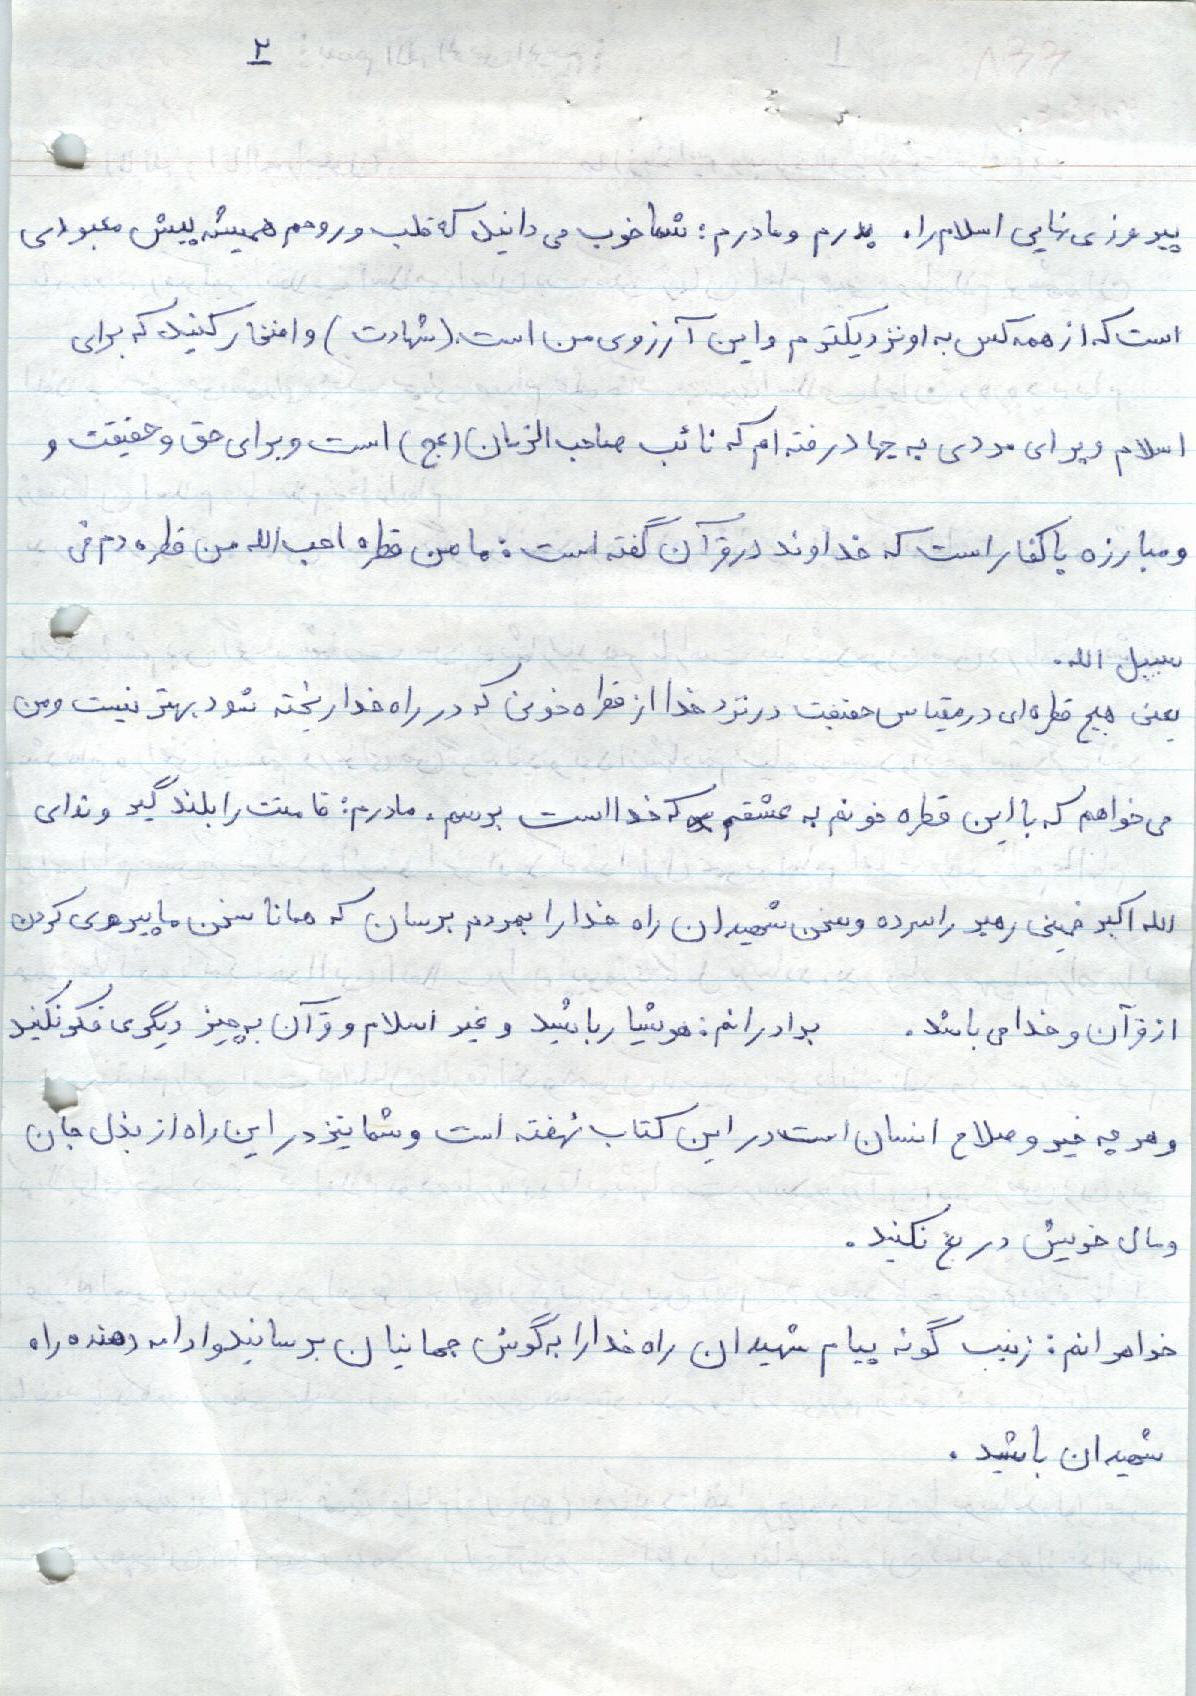 ۲
پیروزی نهایی اسلام را. پدرم و مادرم: شما خوب می دانید که قلب و روحم همیشه پیش معبودی
است که از همه کس به او نزدیکترم و این آرزوی من است.(شهادت) و افتخار کنید که برای
اسلام و برای مردی به جهاد رفته ام که نائب صاحب الزمان (عج) است و برای حق و حقیقت و
و مبارزه با کفار است که خداوند در قرآن گفته است: ما من قطره احب الله من قطره دم فی
سبیل الله.
یعنی هیچ قطره ای در مقیاس حقیقت در نزد خدا از قطره خونی که در راه خدا ریخته شود بهتر نیست و من
می خواهم که با این قطره خونم به عشقم که خدا است برسم. مادرم: قامتت را بلند گیر و ندای
الله اکبر خمینی رهبر را سرده و سخن شهیدان راه خدا را بمردم برسان که همانا سخن ما پیروی کردن
از قرآن و خدا می باشد. برادرانم: هوشیار باشید و غیر اسلام و قرآن به چیز دیگری فکر نکنید
و هر چه خیر و صلاح انسان است در این کتاب نهفته است و شما نیز در این راه از بذل جان
و مال خویش دریغ نکنید.
خواهرانم: زینب گونه پیام شهیدان راه خدا را به گوش جهانیان برسانید و ادامه دهنده راه
شهیدان باشید.